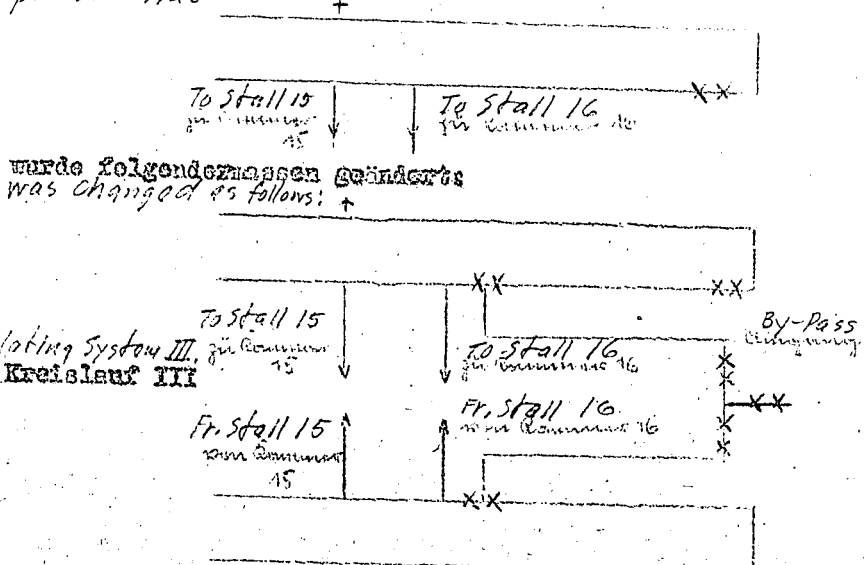 To Stall 15
zu Kammer
15
To Stall 16
zu Kammer 16
wurde folgendermassen geändert:
was changed as follows:
To Stall 15
zu Kammer
15
To Stall 16
zu Kammer 16
By-Pass
Umgang
lating System III.
Kreislauf III
Fr. Stall 15
von Kammer
15
Fr. Stall 16
von Kammer 16